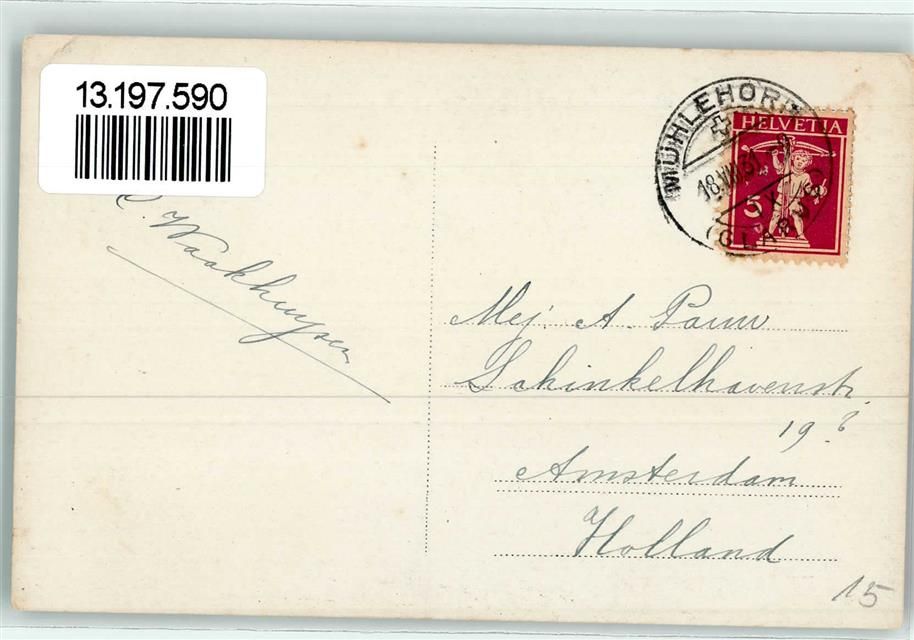 13.197.590
MÜHLEHORN
18.VIII.31
(GLARUS)
HELVETIA
5
C. Waakhuysen
Mej. A. Pauw
Schinkelhavenstr.
19
Amsterdam
Holland
15